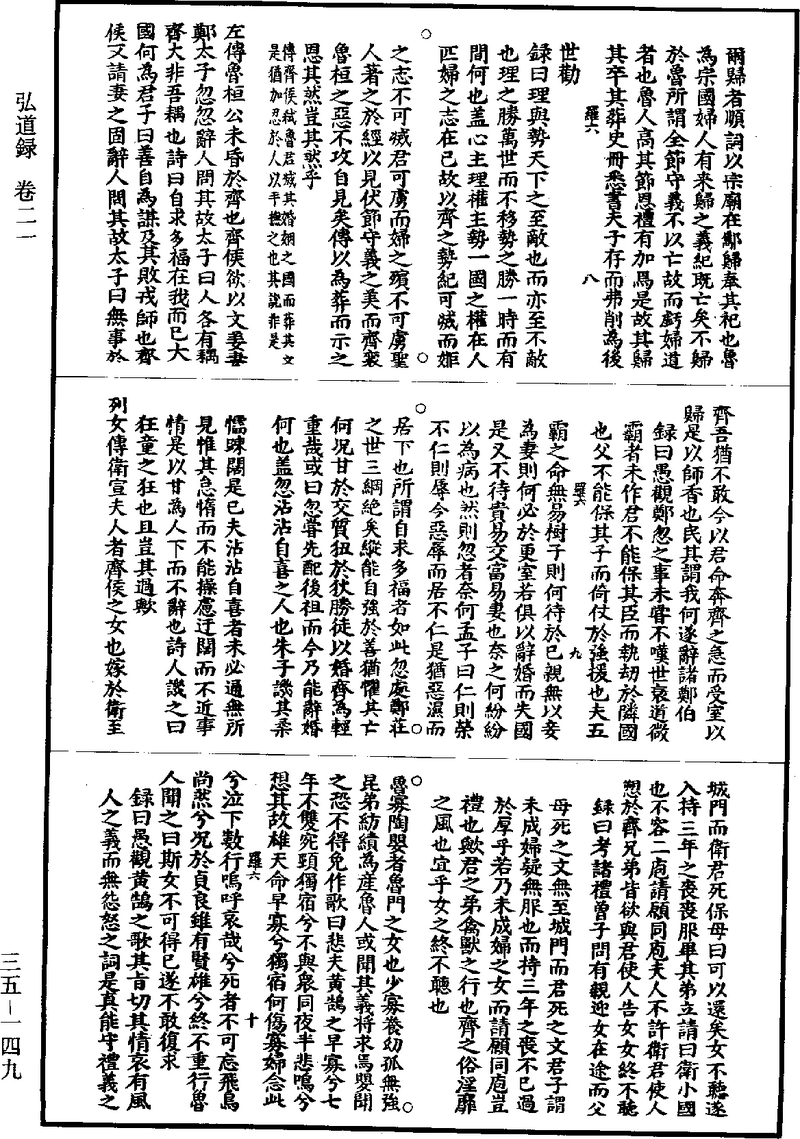 弘道録 卷二一
三五—一四九
爾歸者順詞以宗廟在鄑歸奉其祀也魯
為宗國婦人有來歸之義紀既亡矣不歸
於魯所謂全節守義不以亡故而虧婦道
者也魯人高其節恩禮有加焉是故其歸
其卒其葬史冊悉書夫子存而弗削為後
羅六 八
世勸
録曰理與勢天下之至敵也而亦至不敵
也理之勝萬世而不移勢之勝一時而有
間何也蓋心主理權主勢一國之權在人
匹婦之志在已故以齊之勢紀可滅而姬
之志不可滅君可虜而婦之殯不可虜聖
人著之於經以見伏節守義之美而齊襄
魯桓之惡不攻自見矣傳以為葬而示之
恩其然豈其然乎
傳齊侯弒魯君滅其婚姻之國而葬其女
是猶加忍於人以手撫之也其說非是
左傳魯桓公未昏於齊也齊侯欲以文姜妻
鄭太子忽忽辭人問其故太子曰人各有耦
齊大非吾耦也詩曰自求多福在我而已大
國何為君子曰善自為謀及其敗戎師也齊
侯又請妻之固辭人問其故太子曰無事於
齊吾猶不敢今以君命奔齊之急而受室以
歸是以師昏也民其謂我何遂辭諸鄭伯
録曰愚觀鄭忽之事未甞不嘆世衰道微
霸者未作君不能保其臣而執劫於隣國
也父不能保其子而倚仗於強援也夫五
羅六 九
霸之命無易樹子則何待於已親無以妾
為妻則何必於更室若俱以辭婚而失國
是又不待貴易交富易妻也奈之何紛紛
以為病也然則忽者奈何孟子曰仁則榮
不仁則辱今惡辱而居不仁是猶惡濕而
居下也所謂自求多福者如此忽處鄭莊
之世三綱絶矣縱能自強於善猶懼其亡
何況甘於交質狃於狄勝徒以婚齊為輕
重哉或曰忽甞先配後祖而今乃能辭婚
何也蓋忽沾沾自喜之人也朱子譏其柔
懦疎闊是已夫沾沾自喜者未必過無所
見惟其急惰而不能操慮迂闊而不近事
情是以甘為人下而不辭也詩人譏之曰
狂童之狂也且豈其過歟
列女傳衛宣夫人者齊侯之女也嫁於衛至
城門而衛君死保母曰可以還矣女不聽遂
入持三年之喪喪服畢其弟立請曰衛小國
也不容二庖請願同庖夫人不許衛君使人
愬於齊兄弟皆欲與君使人告女女終不聽
録曰考諸禮曾子問有親迎女在途而父
母死之文無至城門而君死之文君子謂
未成婦疑無服也而持三年之喪不已過
於厚乎若乃未成婦之女而請願同庖豈
禮也歟君之弟禽獸之行也齊之俗淫靡
之風也宜乎女之終不聽也
魯寡陶嬰者魯門之女也少寡養幼孤無強
昆弟紡績為産魯人或聞其義將求焉嬰聞
之恐不得免作歌曰悲夫黃鵠之早寡兮七
年不雙宛頸獨宿兮不與衆同夜半悲鳴兮
想其故雄天命早寡兮獨宿何傷寡婦念此
羅六 十
兮泣下數行嗚呼哀哉兮死者不可忘飛鳥
尚然兮況於貞良雖有賢雄兮終不重行魯
人聞之曰斯女不可得已遂不敢復求
録曰愚觀黃鵠之歌其旨切其情哀有風
人之義而無怨怒之詞是真能守禮義之